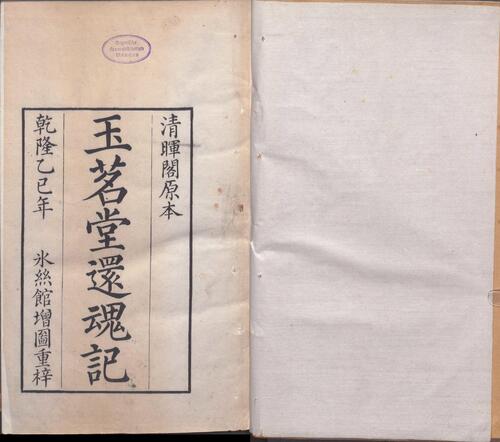 清暉閣原本
玉茗堂還魂記
乾隆乙巳年 氷絲館增圖重梓